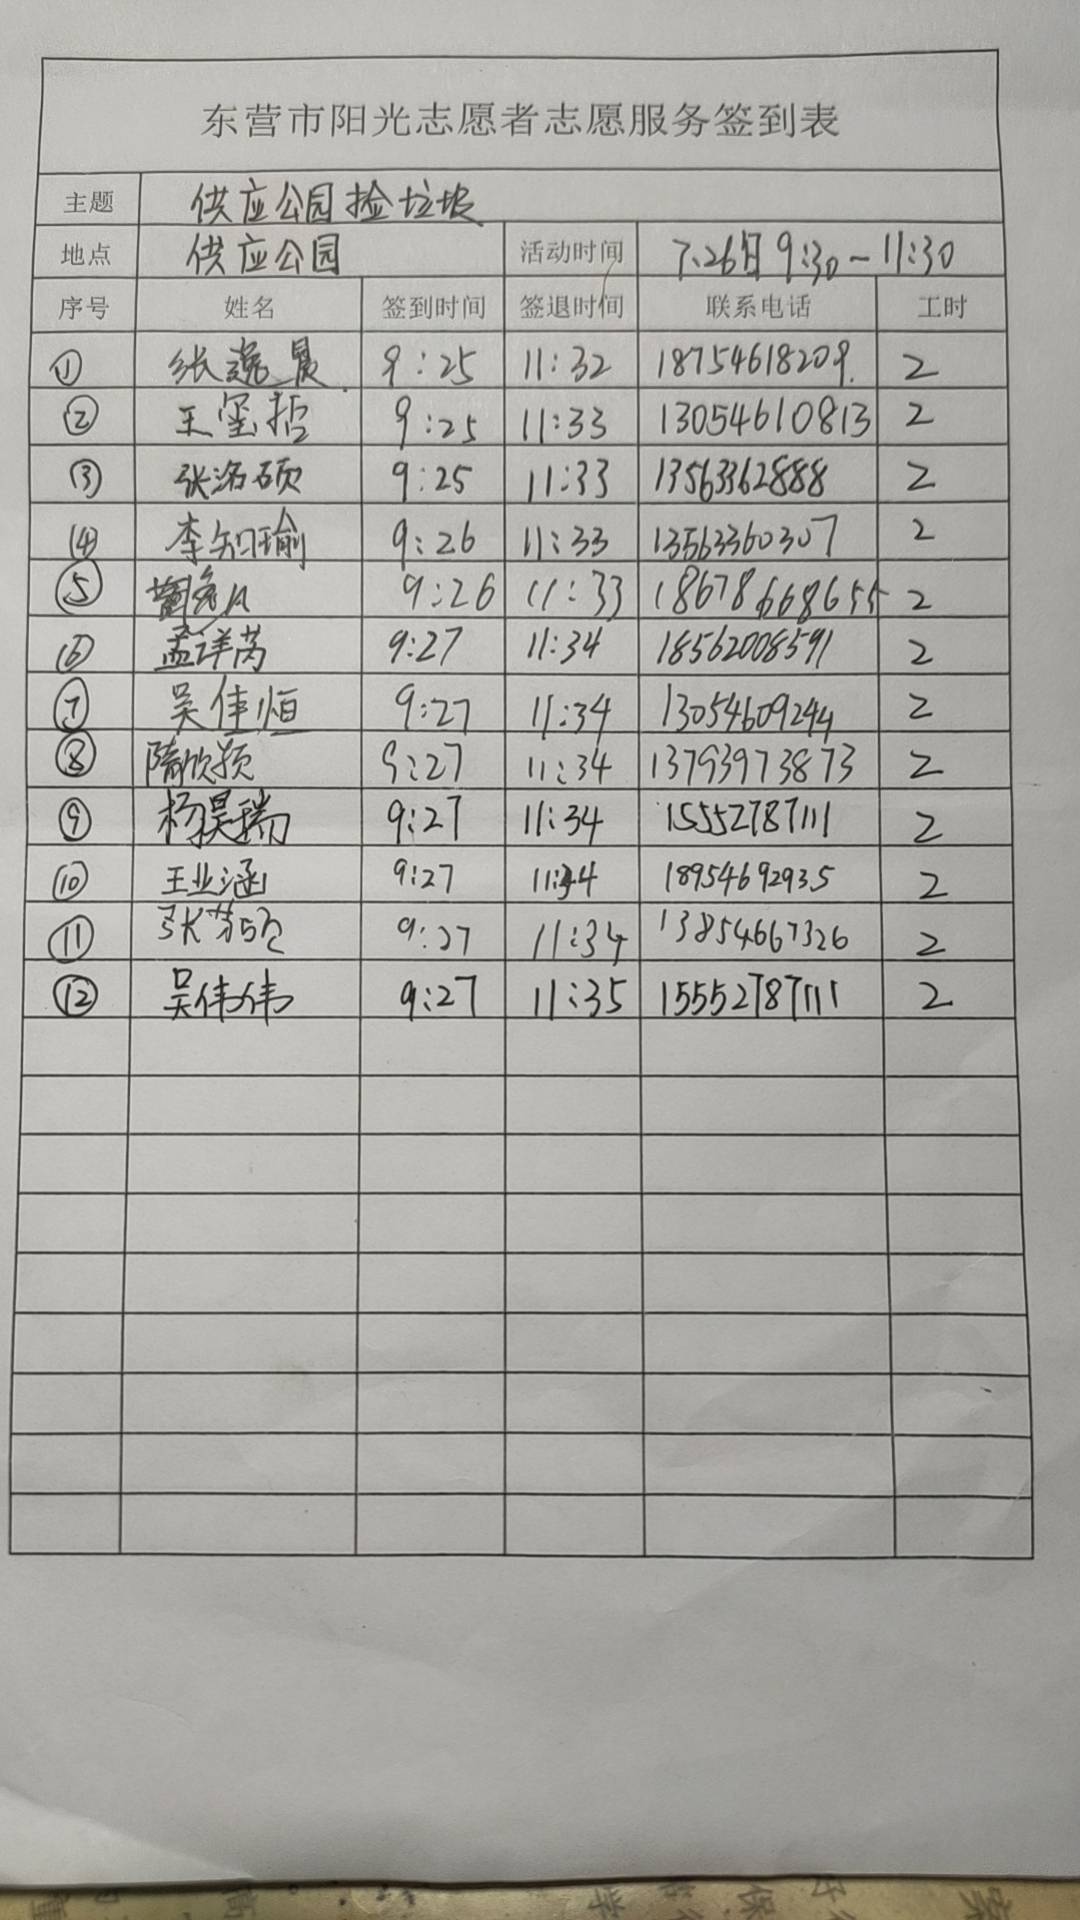 东营市阳光志愿者志愿服务签到表
主题 供应公园捡垃圾
地点 供应公园 活动时间 7.26日 9:30-11:30
序号 姓名 签到时间 签退时间 联系电话 工时
① 张逸晨 9:25 11:32 18754618209. 2
② 王玺哲 9:25 11:33 13054610813 2
③ 张洛硕 9:25 11:33 13563362888 2
④ 李知瑜 9:26 11:33 13563360307 2
⑤ 9:26 11:33 18678668655 2
⑥ 孟详芮 9:27 11:34 18562008591 2
⑦ 吴佳恒 9:27 11:34 13054609244 2
⑧ 隋欣颖 9:27 11:34 13793973873 2
⑨ 杨昊瑞 9:27 11:34 15552787111 2
⑩ 王业涵 9:27 11:34 18954692935 2
⑪ 张 9:27 11:34 13854667326 2
⑫ 吴伟伟 9:27 11:35 15552787111 2